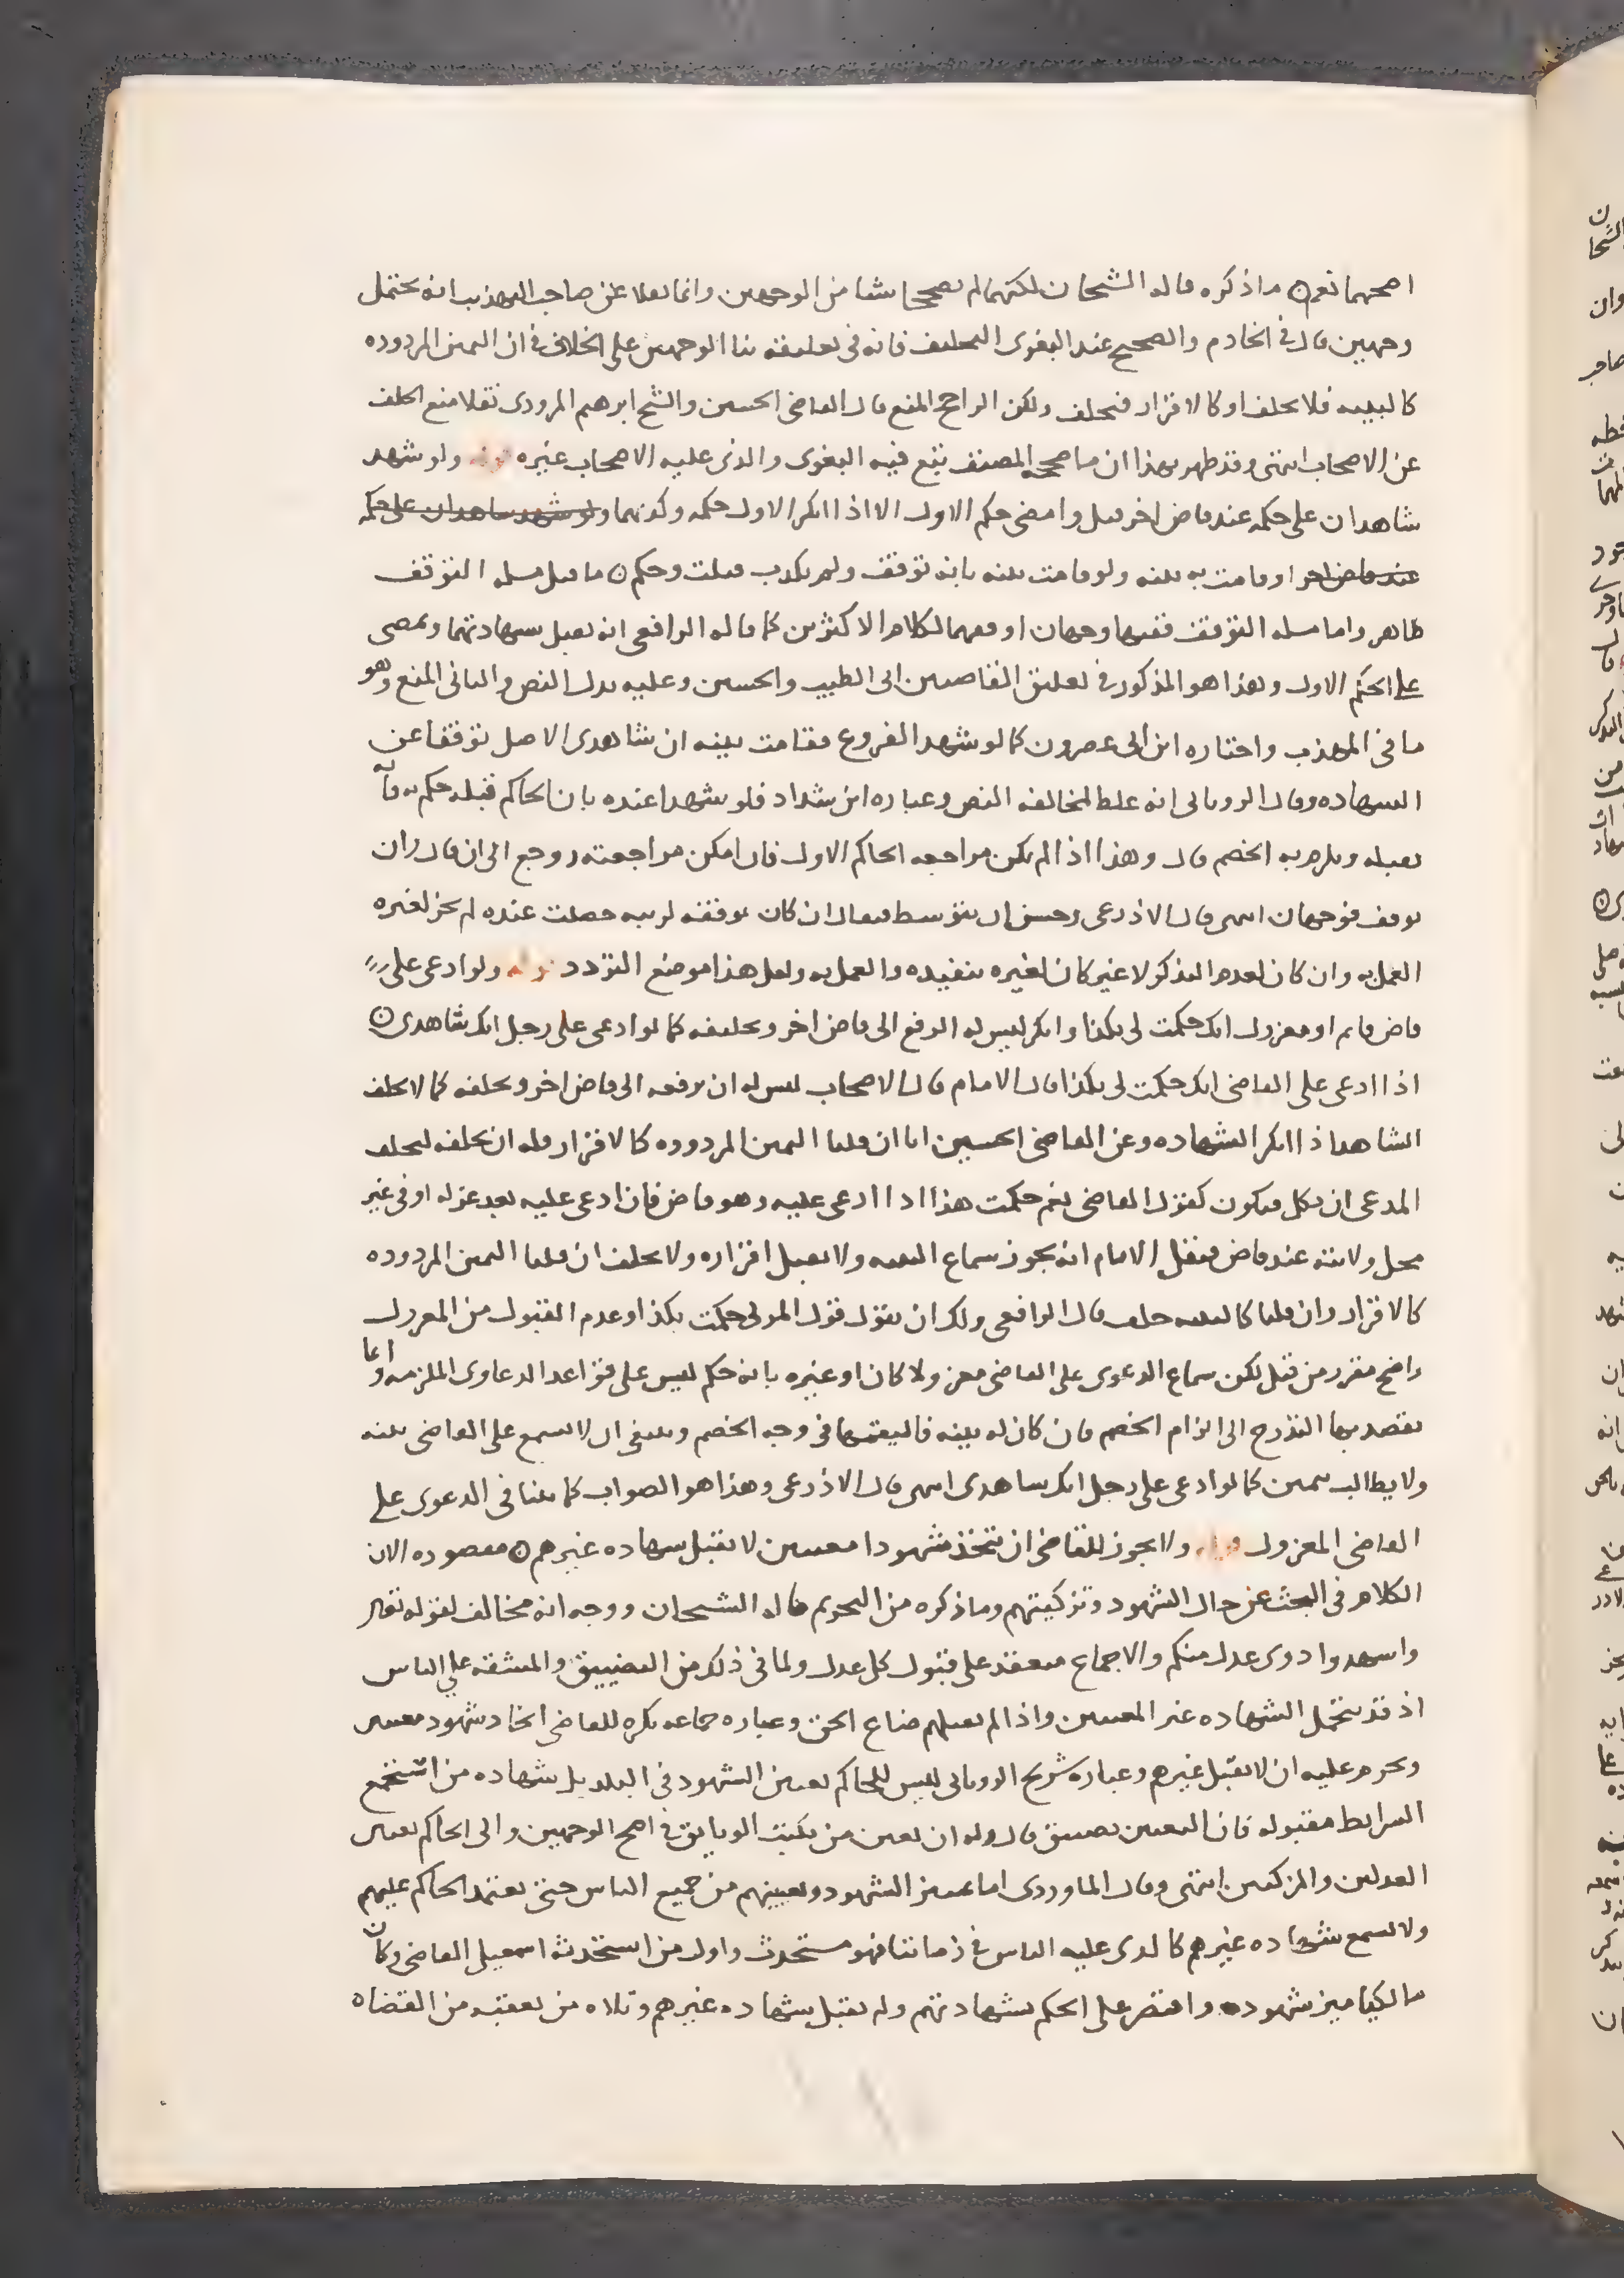 اصحهما نعم ما ذكره قاله الشيخان لكنهما لم يصححا شيا من الوجهين وانما نقلا عن صاحب التهذيب انه يحتمل
وجهين قال في الخادم والصحيح عند البغوي التحليف فانه في تعليقه بنا الوجهين على الخلاف في ان اليمين المردوده
كالبينه فلا يحلف او كالاقرار فيحلف ولكن الراجح المنع قال القاضي الحسين والشيخ ابرهيم المرودى نقلا منع الحلف
عن الاصحاب انتهى وقد ظهر بهذا ان ما صححه المصنف تبع فيه البغوي والذي عليه الاصحاب غيره قوله ولو شهد
شاهدان على حكمه عند قاض اخر قبل وامضى حكم الاول الا اذا انكر الاول حكمه وكذبهما ولو شهد شاهدان على حكمه
عند قاض اخر او قامت به بينه ولو قامت بينه بانه توقف ولم يكذب قبلت وحكم ما قبل مسله التوقف
ظاهر واما مسله التوقف ففيها وجهان اوفقهما لكلام الاكثرين كما قاله الرافعي انه تقبل شهادتهما ويمضى
على الحكم الاول وهذا هو المذكور في تعليق القاضيين ابي الطيب والحسين وعليه يدل النص والثاني المنع وهو
ما في المهذب واختاره ابن ابي عصرون كما لو شهد الفروع فقامت بينه ان شاهدي الاصل توقفا عن
الشهاده وقال الروياني انه غلط لمخالفه النص وعباره ابن شداد فلو شهدا عنده بان الحاكم قبله حكم به فانه
يقبله ويلزم به الخصم قال وهذا اذا لم يكن مراجعه الحاكم الاول فان امكن مراجعته روجع الى ان قال وان
توقف فوجهان انتهى قال الاذرعي وحسن ان يتوسط فيقال ان كان توقفه لريبه حصلت عنده لم يجز لغيره
العمل به وان كان لعدم التذكر لا غير كان لغيره تنفيذه والعمل به ولعل هذا موضع التردد قوله ولو ادعى على
قاض قايم او معزول انك حكمت لي بكذا وانكر ليس له الرفع الى قاض اخر وتحليفه كما لو ادعى على رجل انك شاهدي
اذا ادعى على القاضي انك حكمت لي بكذا قال الامام قال الاصحاب ليس له ان يرفعه الى قاض اخر ويحلفه كما لا يحلف
الشاهد اذا انكر الشهاده وعن القاضي الحسين انا ان قلنا اليمين المردوده كالاقرار فله ان يحلفه ليحلف
المدعي ان نكل فيكون كقول القاضي نعم حكمت هذا اذا ادعى عليه وهو قاض فان ادعى عليه بعد عزله او في غير
محل ولايته عند قاض فنقل الامام انه يجوز سماع البينه ولا يقبل اقراره ولا يحلف ان قلنا اليمين المردوده
كالاقرار وان قلنا كالبينه حلف قال الرافعي ولك ان تقول قول المولى حكمت بكذا وعدم القبول من المعزول
واضح مقرر من قبل لكن سماع الدعوى على القاضي معزولا كان او غيره بانه حكم ليس على قواعد الدعاوى الملزمه وانما
يقصد بها التدرج الى الزام الخصم فان كان له بينه فاليقمها في وجه الخصم وينبغي ان لا يسمع على القاضي بينه
ولا يطالب بيمين كما لو ادعى على رجل انك شاهدي انتهى قال الاذرعي وهذا هو الصواب كما بينا في الدعوى على
القاضي المعزول قوله ولا يجوز للقاضي ان يتخذ شهودا معينين لا يقبل شهاده غيرهم مقصوده الان
الكلام في البحث عن حال الشهود وتزكيتهم وما ذكره من التحريم قاله الشيخان ووجه انه مخالف لقوله تعالى
واشهدوا ذوي عدل منكم والاجماع منعقد على قبول كل عدل ولما في ذلك من التضييق والمشقه على الناس
اذ قد يتحمل الشهاده غير المعينين واذا لم يقبلهم ضاع الحق وعباره جماعه يكره للقاضي اتخاذ شهود معينين
ويحرم عليه ان لا يقبل غيرهم وعباره شريح الروياني ليس للحاكم تعيين الشهود في البلد بل شهاده من استجمع
الشرايط مقبوله فان التعيين تضييق قال وله ان يعين من يكتب الوثايق في اصح الوجهين والى الحاكم تعيين
العدلين والمزكيين انتهى وقال الماوردي اما تمييز الشهود وتعيينهم من جميع الناس حتى يعتمد الحاكم عليهم
ولا يسمع شهاده غيرهم كالذي عليه الناس في زماننا فهو مستحدث واول من استحدثه اسمعيل القاضي وكان
مالكيا ميز شهوده واقتصر على الحكم بشهادتهم ولم يقبل شهاده غيرهم وتلاه من تعقبه من القضاه